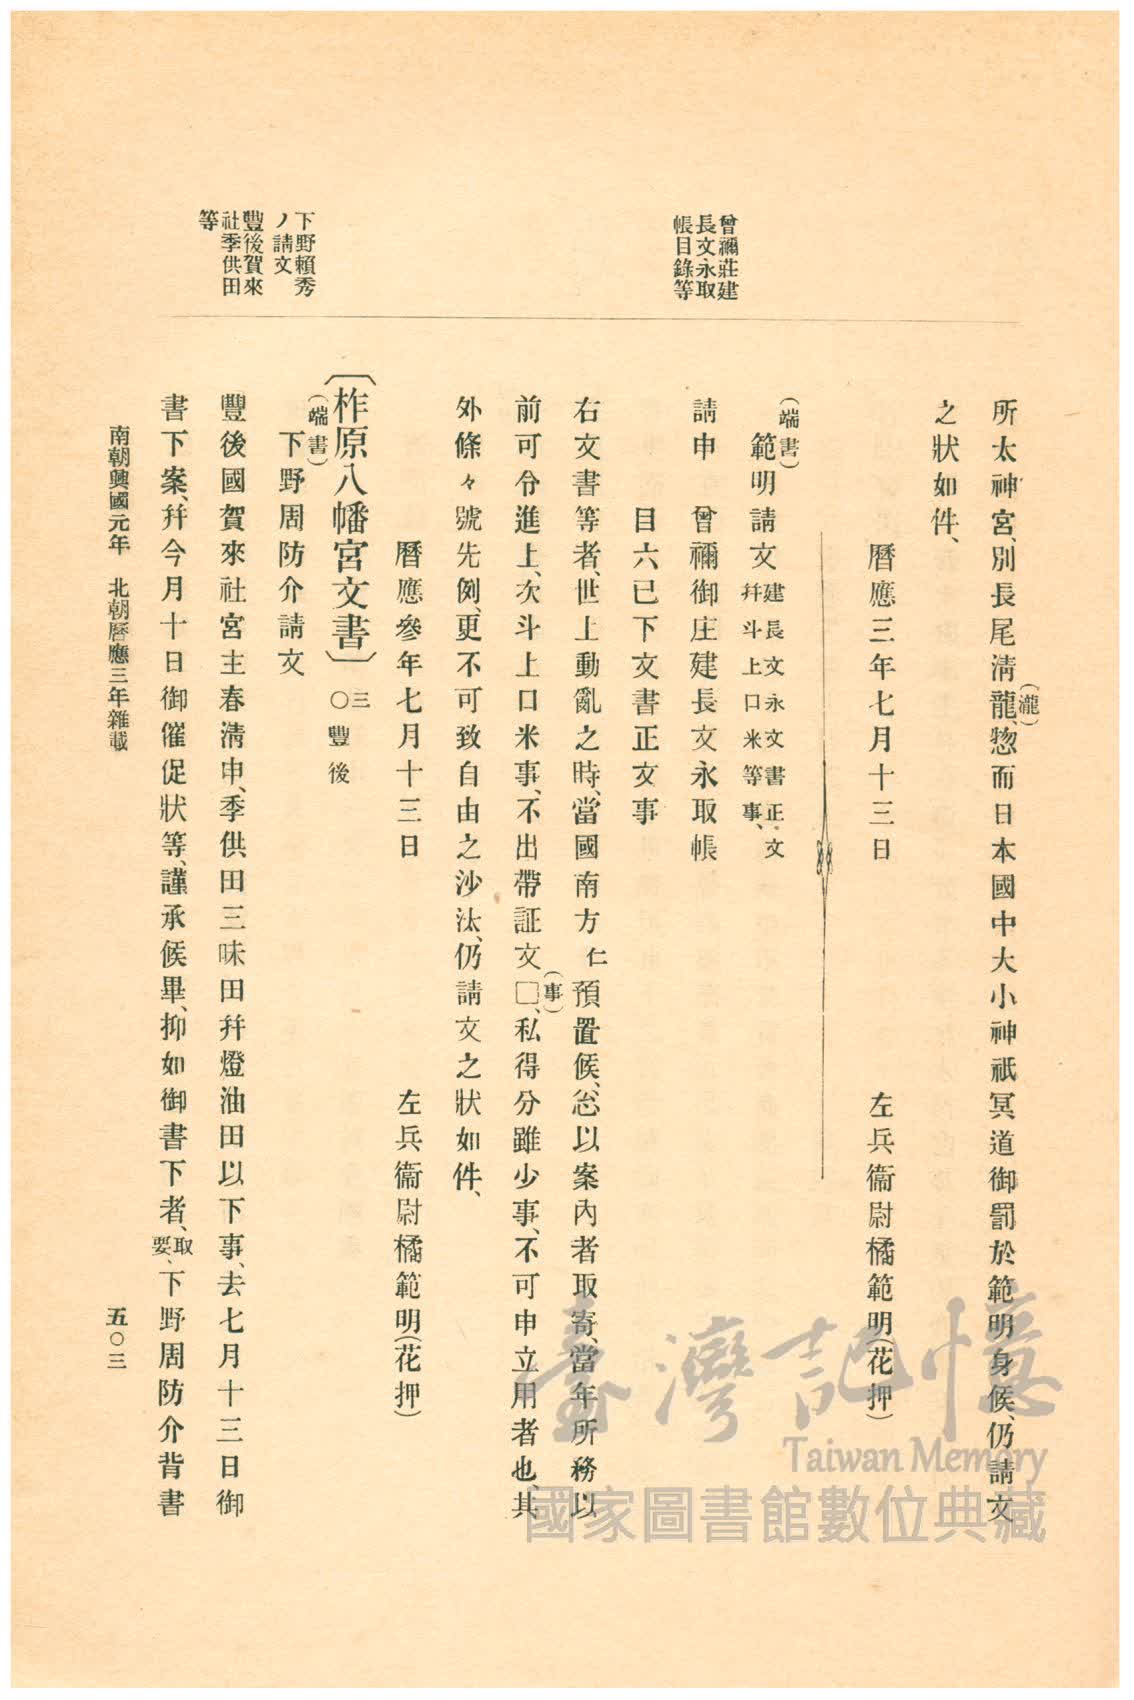 曾禰莊建
長文永取
帳目錄等
下野賴秀
ノ請文
豐後賀來
社季供田
等
所太神宮、別長尾淸龍、(瀧)惣而日本國中大小神祇冥道御罰於範明身候、仍請文
之狀如件、
曆應三年七月十三日　左兵衞尉橘範明(花押)
(端書)
範明請文建長文永文書正文
幷斗上口米等事、
請申　曾禰御庄建長文永取帳
目六已下文書正文事
右文書等者、世上動亂之時、當國南方仁預置候、忩以案內者取寄、當年所務以
前可令進上、次斗上口米事、不出帶証文□、(事)私得分雖少事、不可申立用者也、其
外條々號先例、更不可致自由之沙汰、仍請文之狀如件、
曆應參年七月十三日　左兵衞尉橘範明(花押)
〔柞原八幡宮文書〕三
○豐後
(端書)
下野周防介請文
豐後國賀來社宮主春淸申、季供田三味田幷燈油田以下事、去七月十三日御
書下案、幷今月十日御催促狀等、謹承候畢、抑如御書下者、取要、下野周防介背書
南朝興國元年　北朝曆應三年雜載
五○三
臺灣記憶
Taiwan Memory
國家圖書館數位典藏